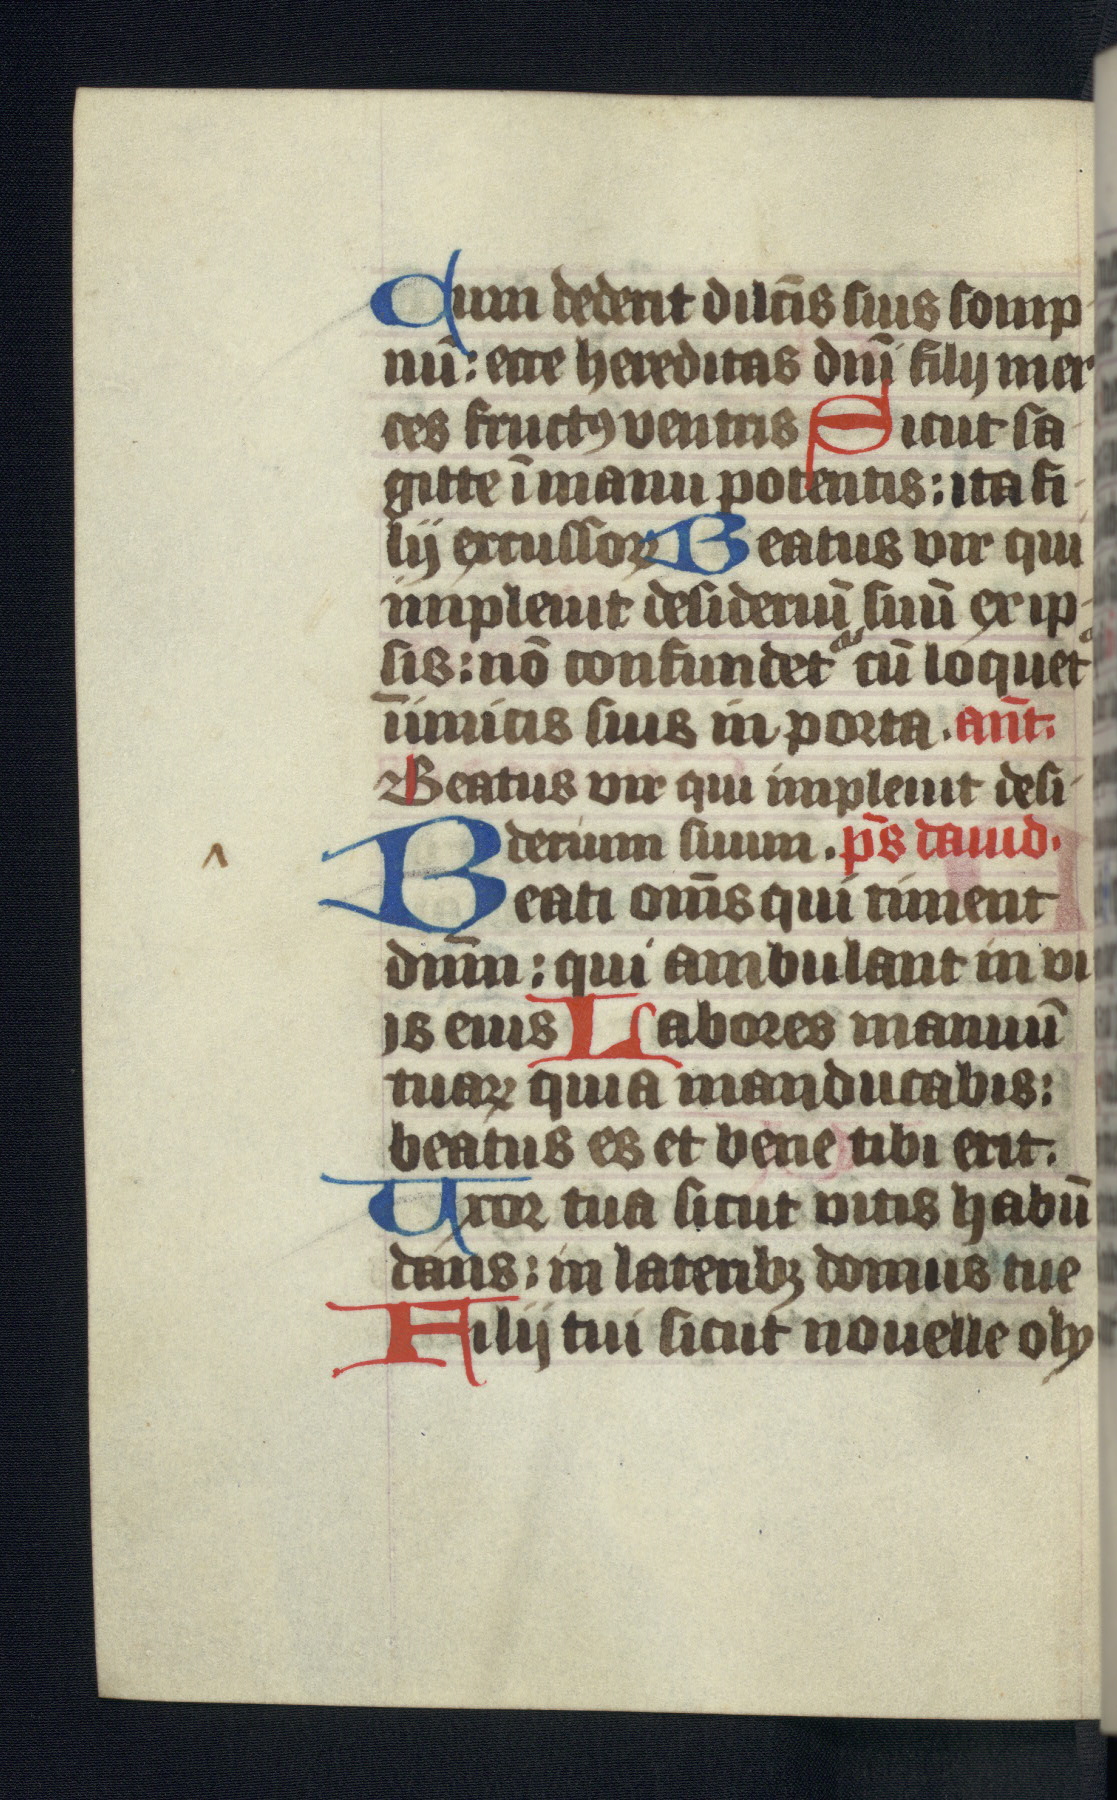 Cum dederit dilc̄is suis somp
nū: ecce hereditas dn̄i filij mer
ces fructꝯ ventris Sicut sa
gitte ī manu potentis: ita fi
lij excussoꝝ Beatus vir qui
impleuit desideriū suū ex ip
sis: nō confundetᵘʳ cū loquetᵘʳ
īimicis suis in porta. ant̄.
Beatus vir qui impleuit desi
derium suum. ps̄ dauid.
Beati om̄s qui timent
dnm̄: qui ambulant in vi
js eius Labores manuū
tuaꝝ quia manducabis:
beatus es et bene tibi erit.
Uxor tua sicut vitis habū
dans: in lateribꝫ domus tue
Filij tui sicut nouelle oliv